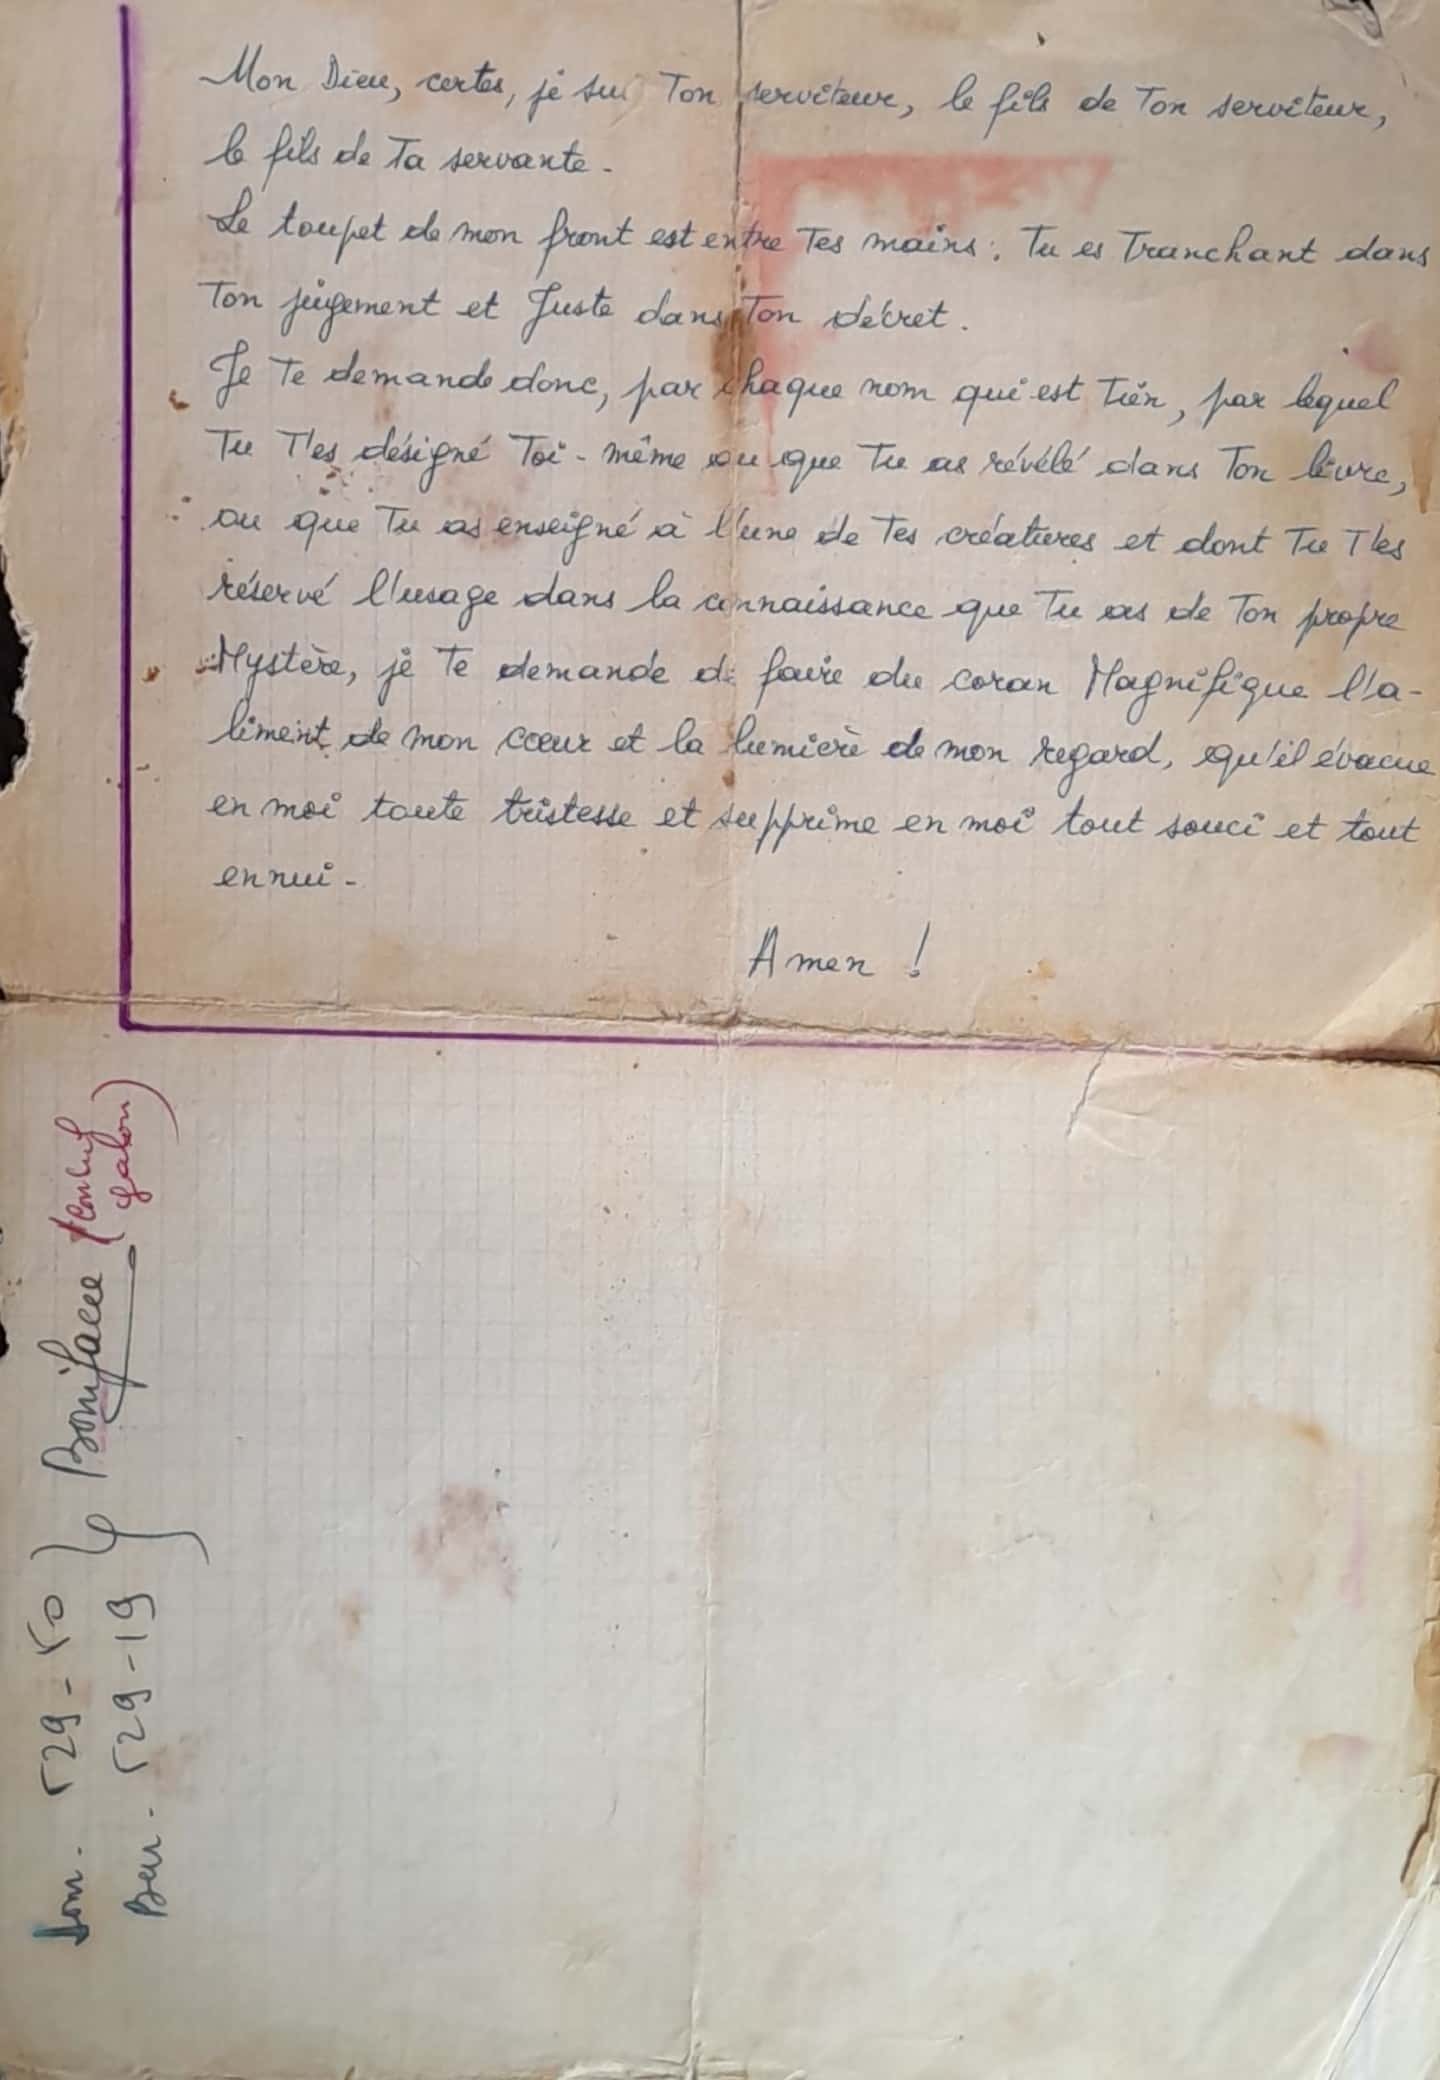 Mon Dieu, certes, je sui Ton serviteur, le fils de Ton serviteur,
le fils de Ta servante.
Le toupet de mon front est entre Tes mains : Tu es Tranchant dans
Ton jugement et Juste dans Ton décret.
Je Te demande donc, par chaque nom qui est Tien, par lequel
Tu T'es désigné Toi-même ou que Tu as révélé dans Ton livre,
ou que Tu as enseigné à l'une de Tes créatures et dont Tu T'es
réservé l'usage dans la connaissance que Tu as de Ton propre
Mystère, je Te demande de faire du coran Magnifique l'a-
liment de mon cœur et la lumière de mon regard, qu'il évacue
en moi toute tristesse et supprime en moi tout souci et tout
ennui -
Amen !
Dom - 529-50
Bur - 529-19
Boniface
Gabon)